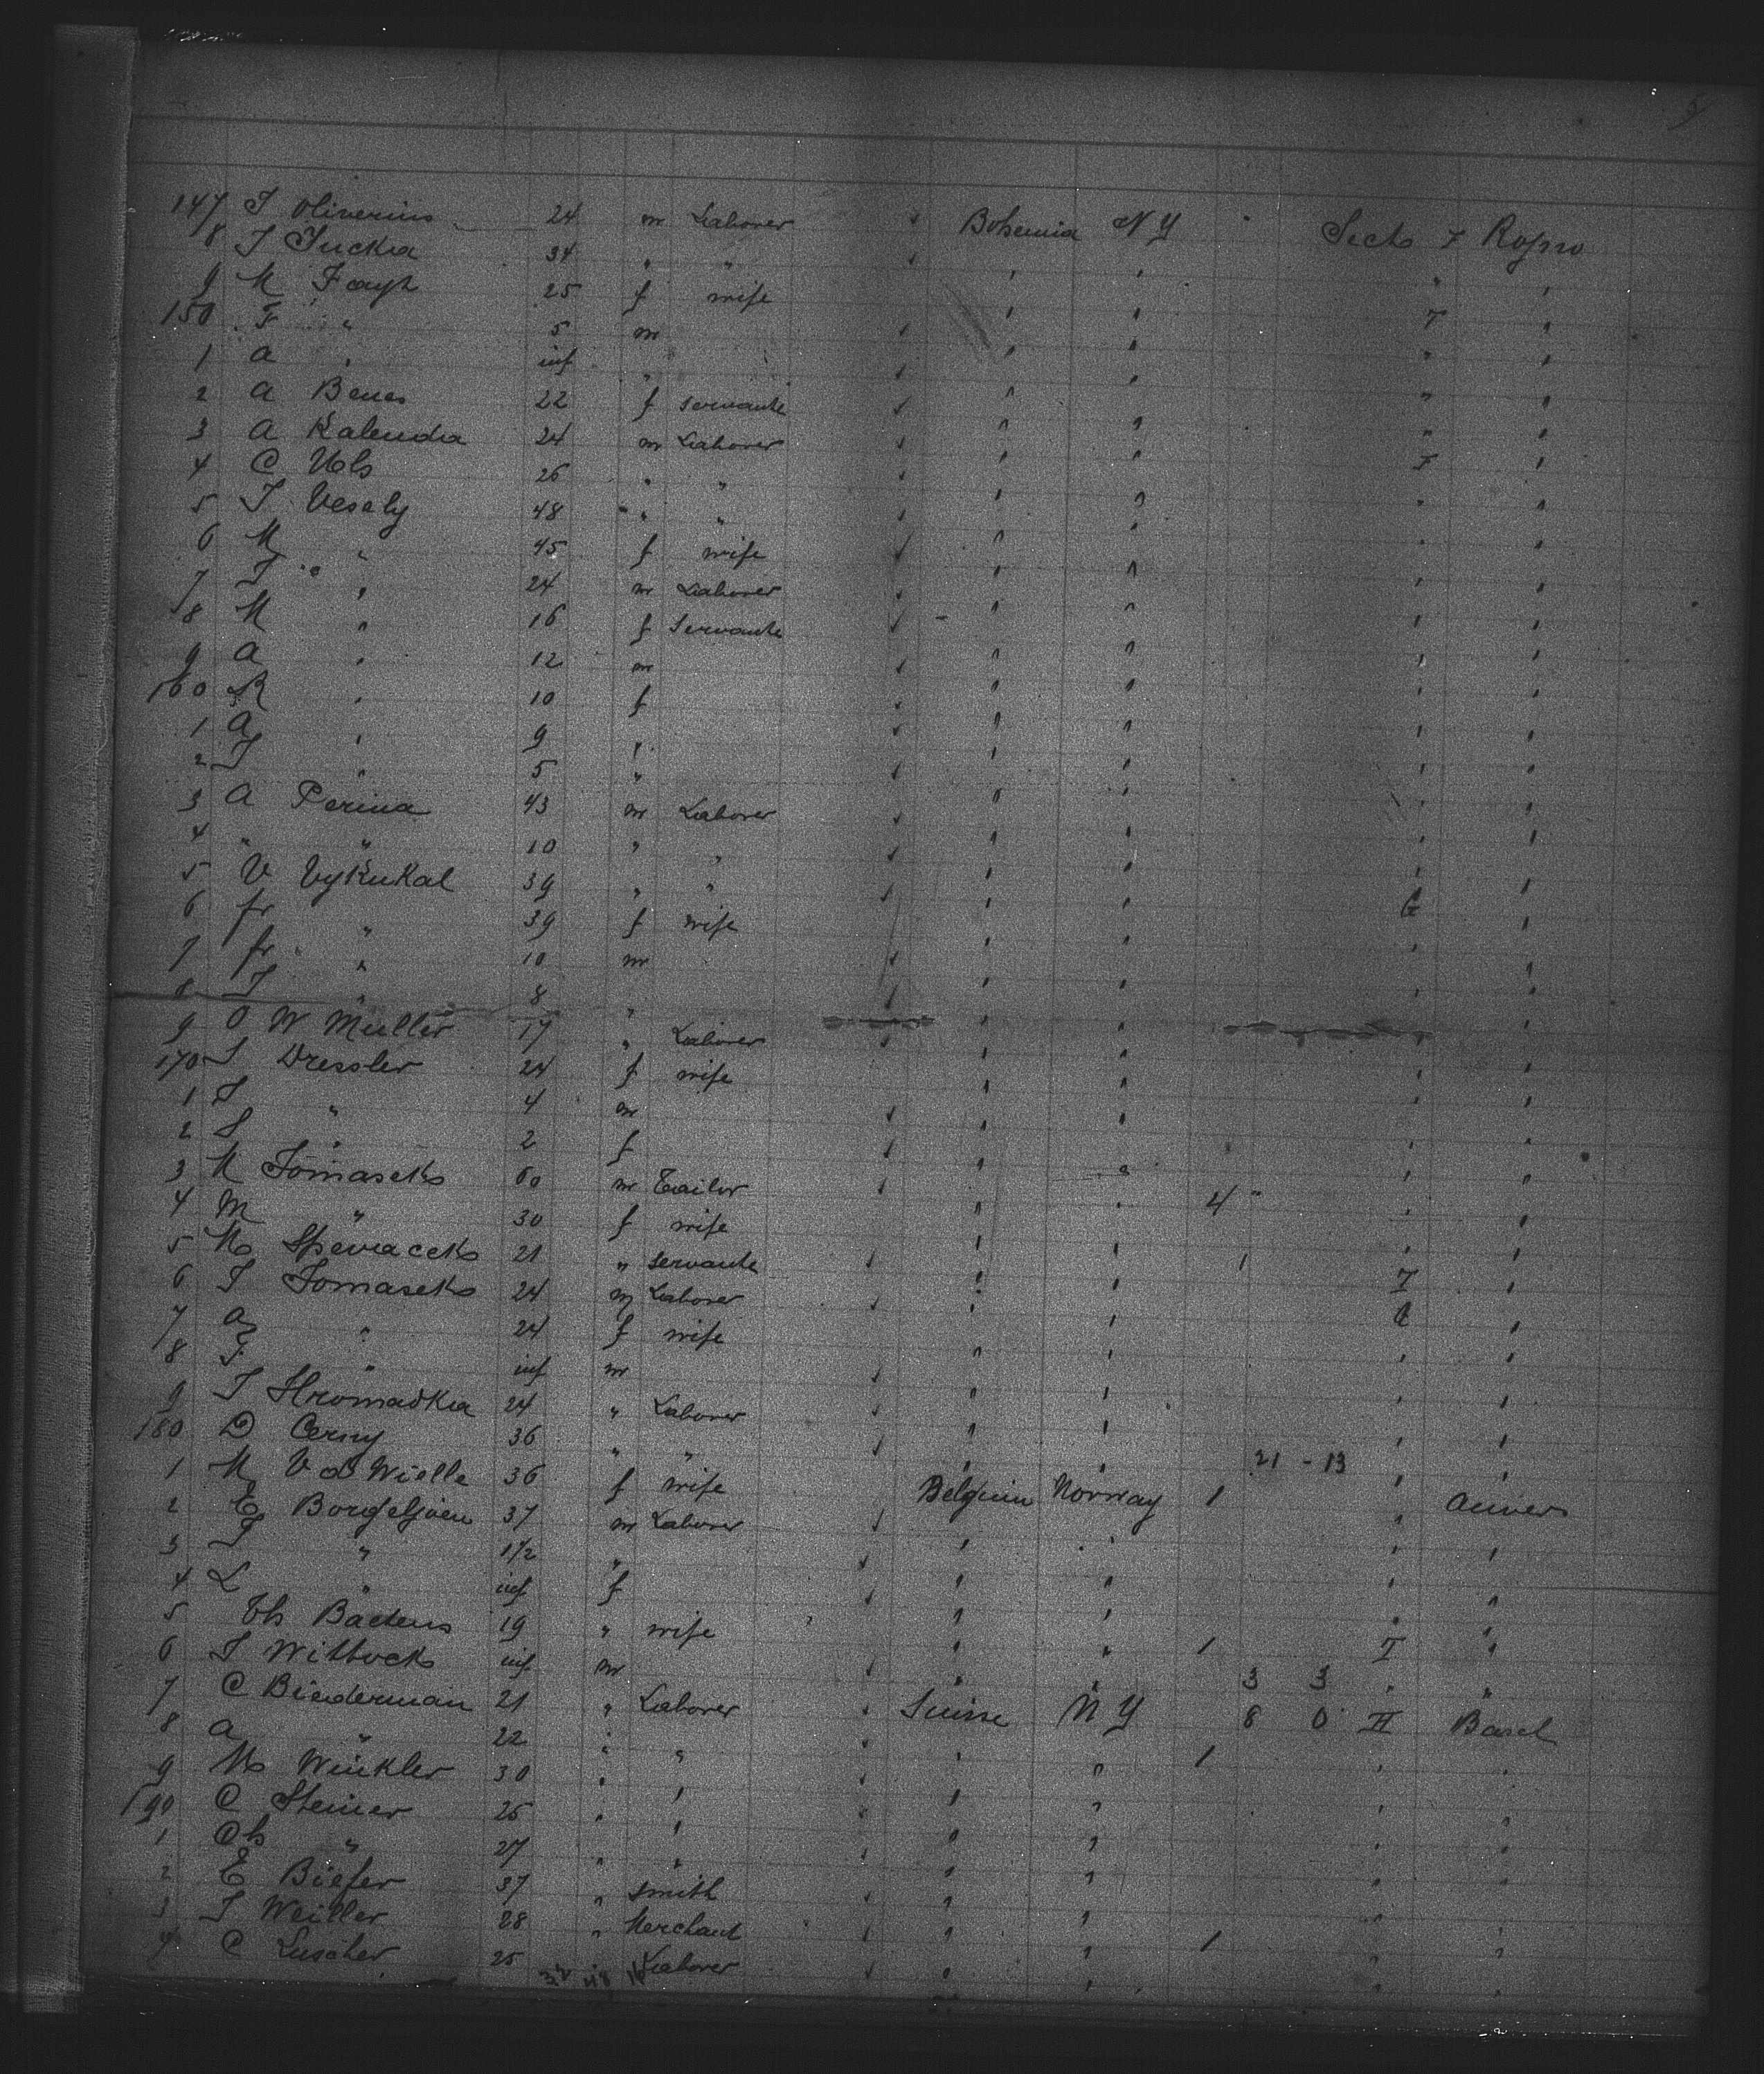 5
147 J Oliverius 24 m Laborer Bohemia N Y
8 J 34 " "
9 M Fayt 25 f wife " "
150 F " 5 m " "
1 A " inf " " "
2 A Benes 22 f servante " "
3 A Kalenda 24 m Laborer " "
4 C 26 " " " "
5 J Vesely 48 " " " "
6 M " 45 f wife " "
7 J " 24 m Laborer " "
8 M " 16 f Servante " "
9 A " 12 m " "
160 R " 10 f " "
1 A " 9 " " "
2 J " 5 " " "
3 A Perina 43 m Laborer " "
4 " " 10 " " " "
5 V Vykukal 39 " " " "
6 fr " 39 f wife " "
7 fr " 10 m " "
8 J " 8 " " "
9 O W Muller 17 " Laborer " "
170 J Dressler 24 f wife " "
1 J " 4 m " "
2 S " 2 f " "
3 M Tomasek 60 m Tailor " " 4 "
4 M " 30 f wife " "
5 M Spevacek 21 " servante " " 1
6 J Tomasek 24 m Laborer " "
7 A " 24 f wife " "
8 F " inf m " "
9 J Hromadka 24 " Laborer " "
180 D Cerny 36 " " " " 21 - 13
1 M V d Wielle 36 f wife Belgium Norway 1 Anvers
2 E 37 m Laborer " " "
3 J " 1 1/2 " " " "
4 L " inf f " " "
5 Th Baetens 19 " wife " " 1 I "
6 J Wittock inf m " " 3 3 " "
7 C Biederman 21 " Laborer Suisse N Y 8 0 II Basel
8 A " 22 " " " " 1 " "
9 M Winkler 30 " " " " " "
190 C Steiner 25 " " " " " "
1 Ch " 27 " " " " " "
2 E Biefer 37 " smith " " " "
3 J Weiller 28 " Merchant " " 1 " "
4 C Luscher 25 " Laborer " " " "
32 48 16